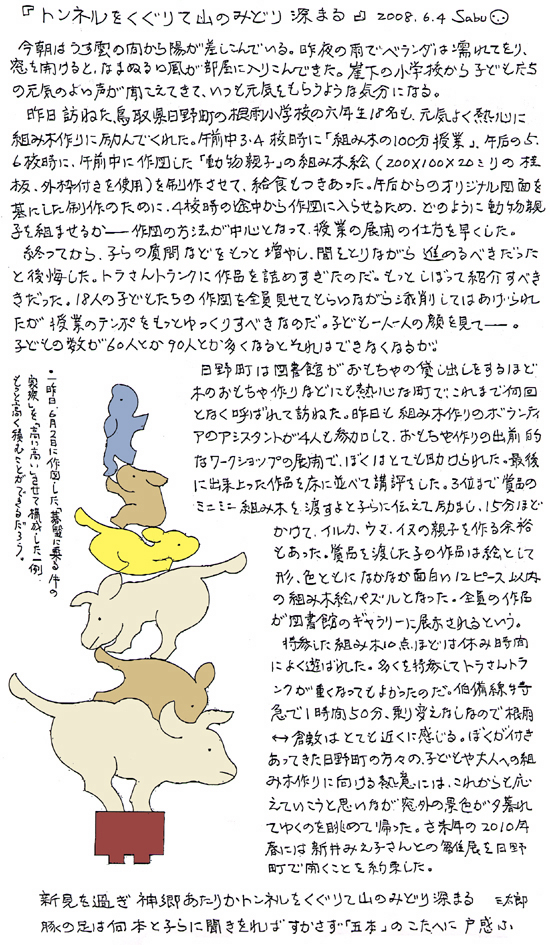 『トンネルをくぐりて山のみどり深まる』 2008.6.4 Sabu
今朝はうす雲の向から陽が差しこんでいる。昨夜の雨でベランダは濡れており、
窓を開けると、なまぬるい風が部屋に入りこんできた。崖下の小学校から子どもたち
の元気のよい声が聞こえてきて、いつも元気をもらうような気分になる。
昨日訪ねた鳥取県日野町の根雨小学校の六年生18名も、元気よく熱心に
組み木作りに励んでくれた。午前中3・4校時に「組み木の100分授業」、午后の5、
6校時に、午前中に作図した「動物親子」の組み木絵(200×100×20ミリの桂
板、外枠付きを使用)を制作させて、給食もつきあった。午后からのオリジナル図面を
基にした制作のために、4校時の途中から作図に入らせるため、どのように動物親
子を組ませるか——作図の方法が中心となって、授業の展開の仕方を早くした。
終ってから、子らの質問などをもっと増やし、間をとりながら進めるべきだった
と後悔した。トラさんトランクに作品を詰めすぎたのだ。もっとしぼって紹介すべ
きだった。18人の子どもたちの作図を全員見せてもらいながら添削してはあげられ
たが授業のテンポをもっとゆっくりすべきなのだ。子ども一人一人の顔を見て——。
子どもの数が60人とか90人とか多くなるとそれはできなくなるが。
日野町は図書館がおもちゃの貸し出しをするほど
木のおもちゃ作りなどにも熱心な町で、これまで何回
となく呼ばれて訪ねた。昨日も組み木作りのボランティ
アのアシスタントが4人も参加して、おもちゃ作りの出前的
なワークショップの展開で、ぼくはとても助けられた。最後
に出来上った作品を床に並べて講評をした。3位まで賞品の
ミニミニ組み木を渡すよと子らに伝えて励まし、15分ほど
かけて、イルカ、ウマ、イヌの親子を作る余裕
もあった。賞品を渡した子の作品は絵として
形、色ともになかなか面白い12ピース以内
の組み木絵パズルとなった。全員の作品
が図書館のギャラリーに展示されるという。
持参した組み木10点ほどは休み時間
によく遊ばれた。多くを持参してトラさんトラ
ンクが重くなってもよかったのだ。伯備線特
急で1時間50分、乗り変えなしなので根雨
↔倉敷はとても近くに感じる。ぼくが付き
あってきた日野町の方々の、子どもや大人への組
み木作りに向ける熱意には、これからも応
えていこうと思いながら窓外の景色が夕暮れ
てゆくのを眺めて帰った。さ来年の2010年
春には新井みえ子さんとの雛展を日野
町で開くことを約束した。
・一昨日、6月2日に作図した「碁盤に乗る牛の
家族」を、「高い高い」させて構成した一例。
もっと高く積むことができるだろう。
新見を過ぎ 神郷あたりかトンネルをくぐりて山のみどり深まる 三太郎
豚の足は何本と子らに聞きをればすかさず「五本」のこたへに戸惑ふ